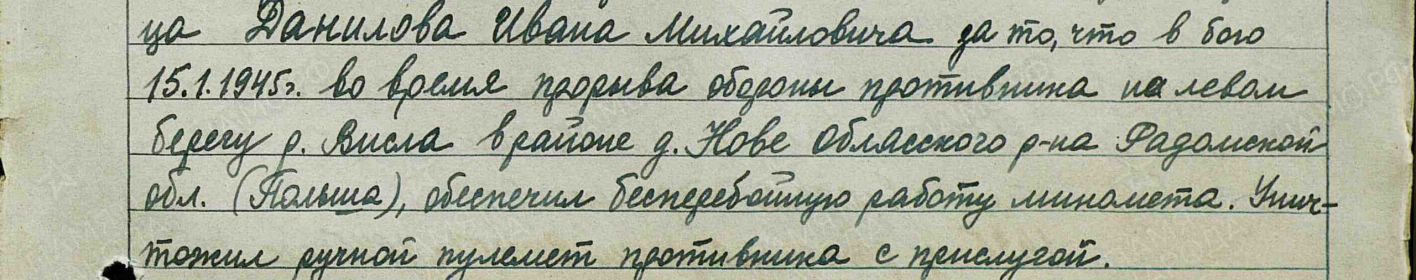 ца Данилова Ивана Михайловича за то, что в бою
15.1.1945г. во время прорыва обороны противника на левом
берегу р. Висла в районе д. Нове Обласского р-на Радомской
обл. (Польша), обеспечил бесперебойную работу миномета. Унич-
тожил ручной пулемет противника с прислугой.